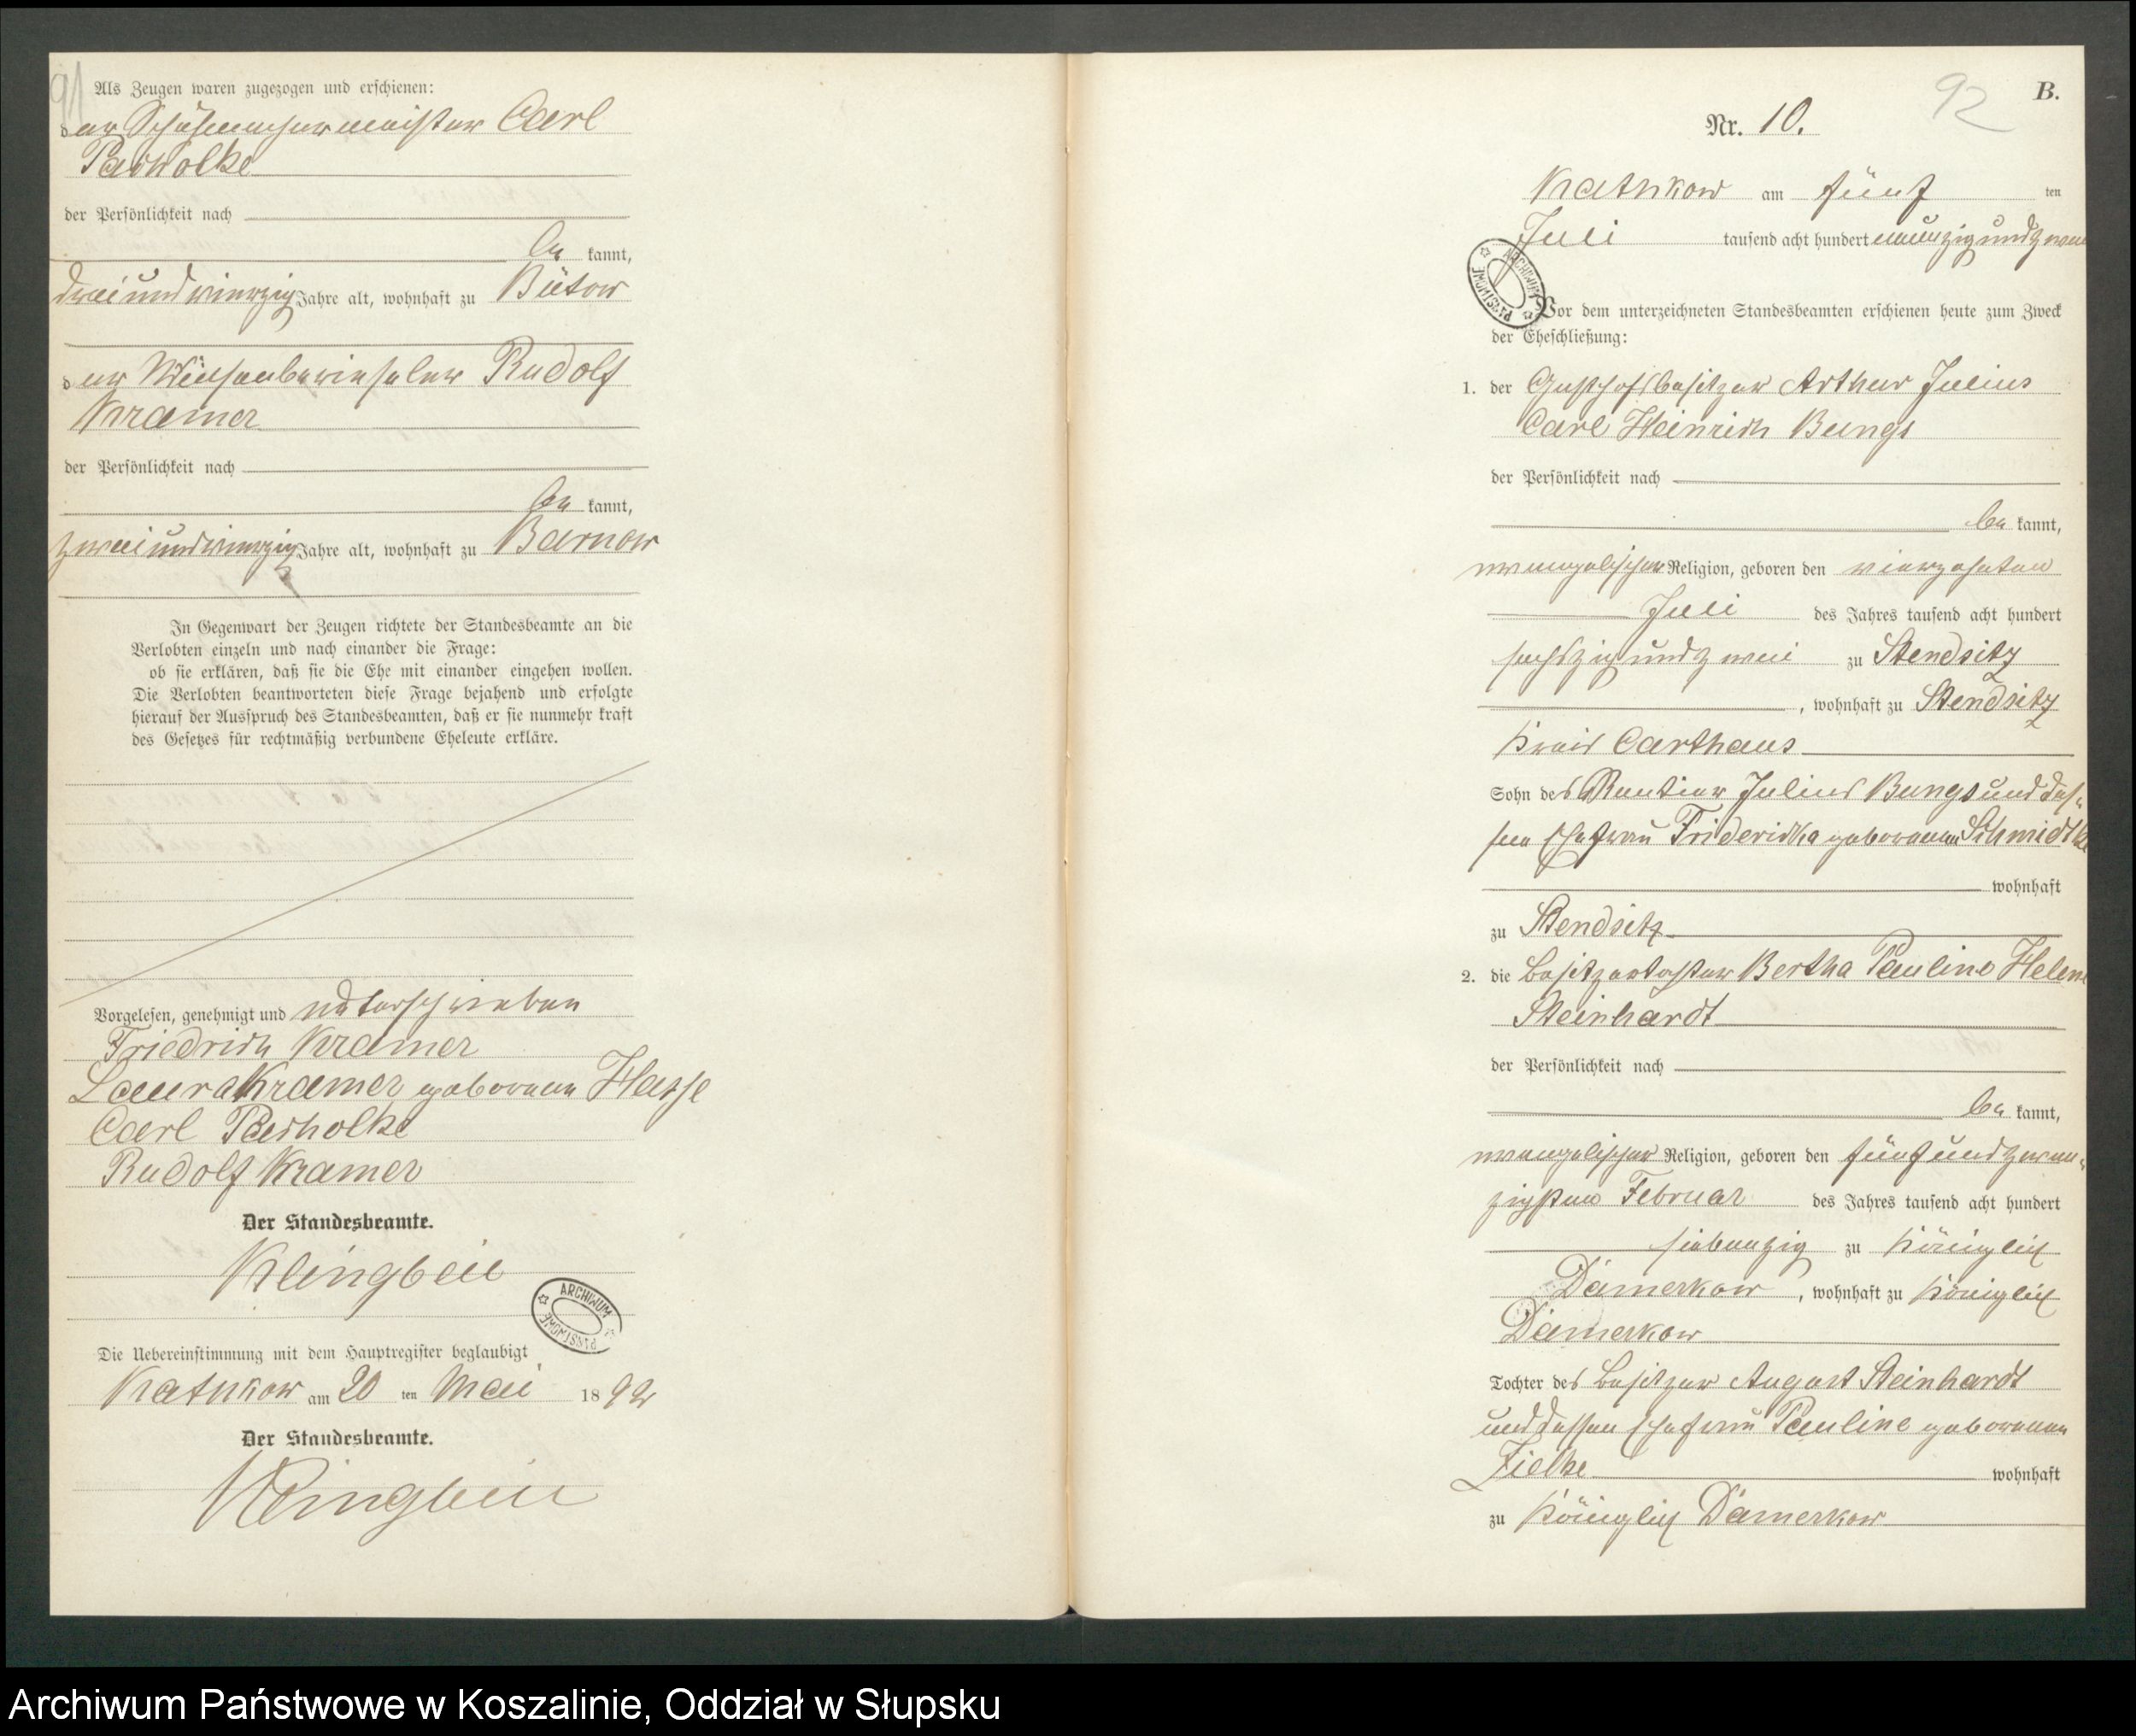 91
Als Zeugen waren zugezogen und erschienen:
der Schuhmachermeister Carl
Parholke
der Persönlichkeit nach
be kannt,
dreiundvierzig Jahre alt, wohnhaft zu Bütow
der Rudolf
Kramer
der Persönlichkeit nach
be kannt,
zweiundvierzig Jahre alt, wohnhaft zu Barnow
In Gegenwart der Zeugen richtete der Standesbeamte an die
Verlobten einzeln und nach einander die Frage:
ob sie erklären, daß sie die Ehe mit einander eingehen wollen.
Die Verlobten beantworteten diese Frage bejahend und erfolgte
hierauf der Ausspruch des Standesbeamten, daß er sie nunmehr kraft
des Gesetzes für rechtmäßig verbundene Eheleute erkläre.
Vorgelesen, genehmigt und unterschrieben
Friedrich Kramer
Laura Kramer geborene Hasse
Carl Parholke
Rudolf Kramer
Der Standesbeamte.
Klingbeil
ARCHIWUM PAŃSTWOWE
Die Uebereinstimmung mit dem Hauptregister beglaubigt
Kathkow am 20 ten Mai 1892
Der Standesbeamte.
Klingbeil
92
B.
Nr. 10.
Kathkow am fünf ten
Juli tausend acht hundert neunzigundzwei
ARCHIWUM PAŃSTWOWE
Vor dem unterzeichneten Standesbeamten erschienen heute zum Zweck
der Eheschließung:
1. der Gasthofsbesitzer Arthur Julius
Carl Heinrich Bungs
der Persönlichkeit nach
be kannt,
evangelischer Religion, geboren den vierzehnten
Juli des Jahres tausend acht hundert
sechszigundzwei zu Stendsitz
, wohnhaft zu Stendsitz
Kreis Carthaus
Sohn des Rentier Julius Bungs und des-
sen Ehefrau Friedericka geborenen Schmidtke
wohnhaft
zu Stendsitz
2. die Besitzertochter Bertha Pauline Helene
Steinhardt
der Persönlichkeit nach
be kannt,
evangelischer Religion, geboren den fünfundzwan-
zigsten Februar des Jahres tausend acht hundert
siebenzig zu Königlich
Damerkow, wohnhaft zu Königlich
Damerkow
Tochter des Besitzer August Steinhardt
und dessen Ehefrau Pauline geborenen
Zielke wohnhaft
zu Königlich Damerkow
Archiwum Państwowe w Koszalinie, Oddział w Słupsku